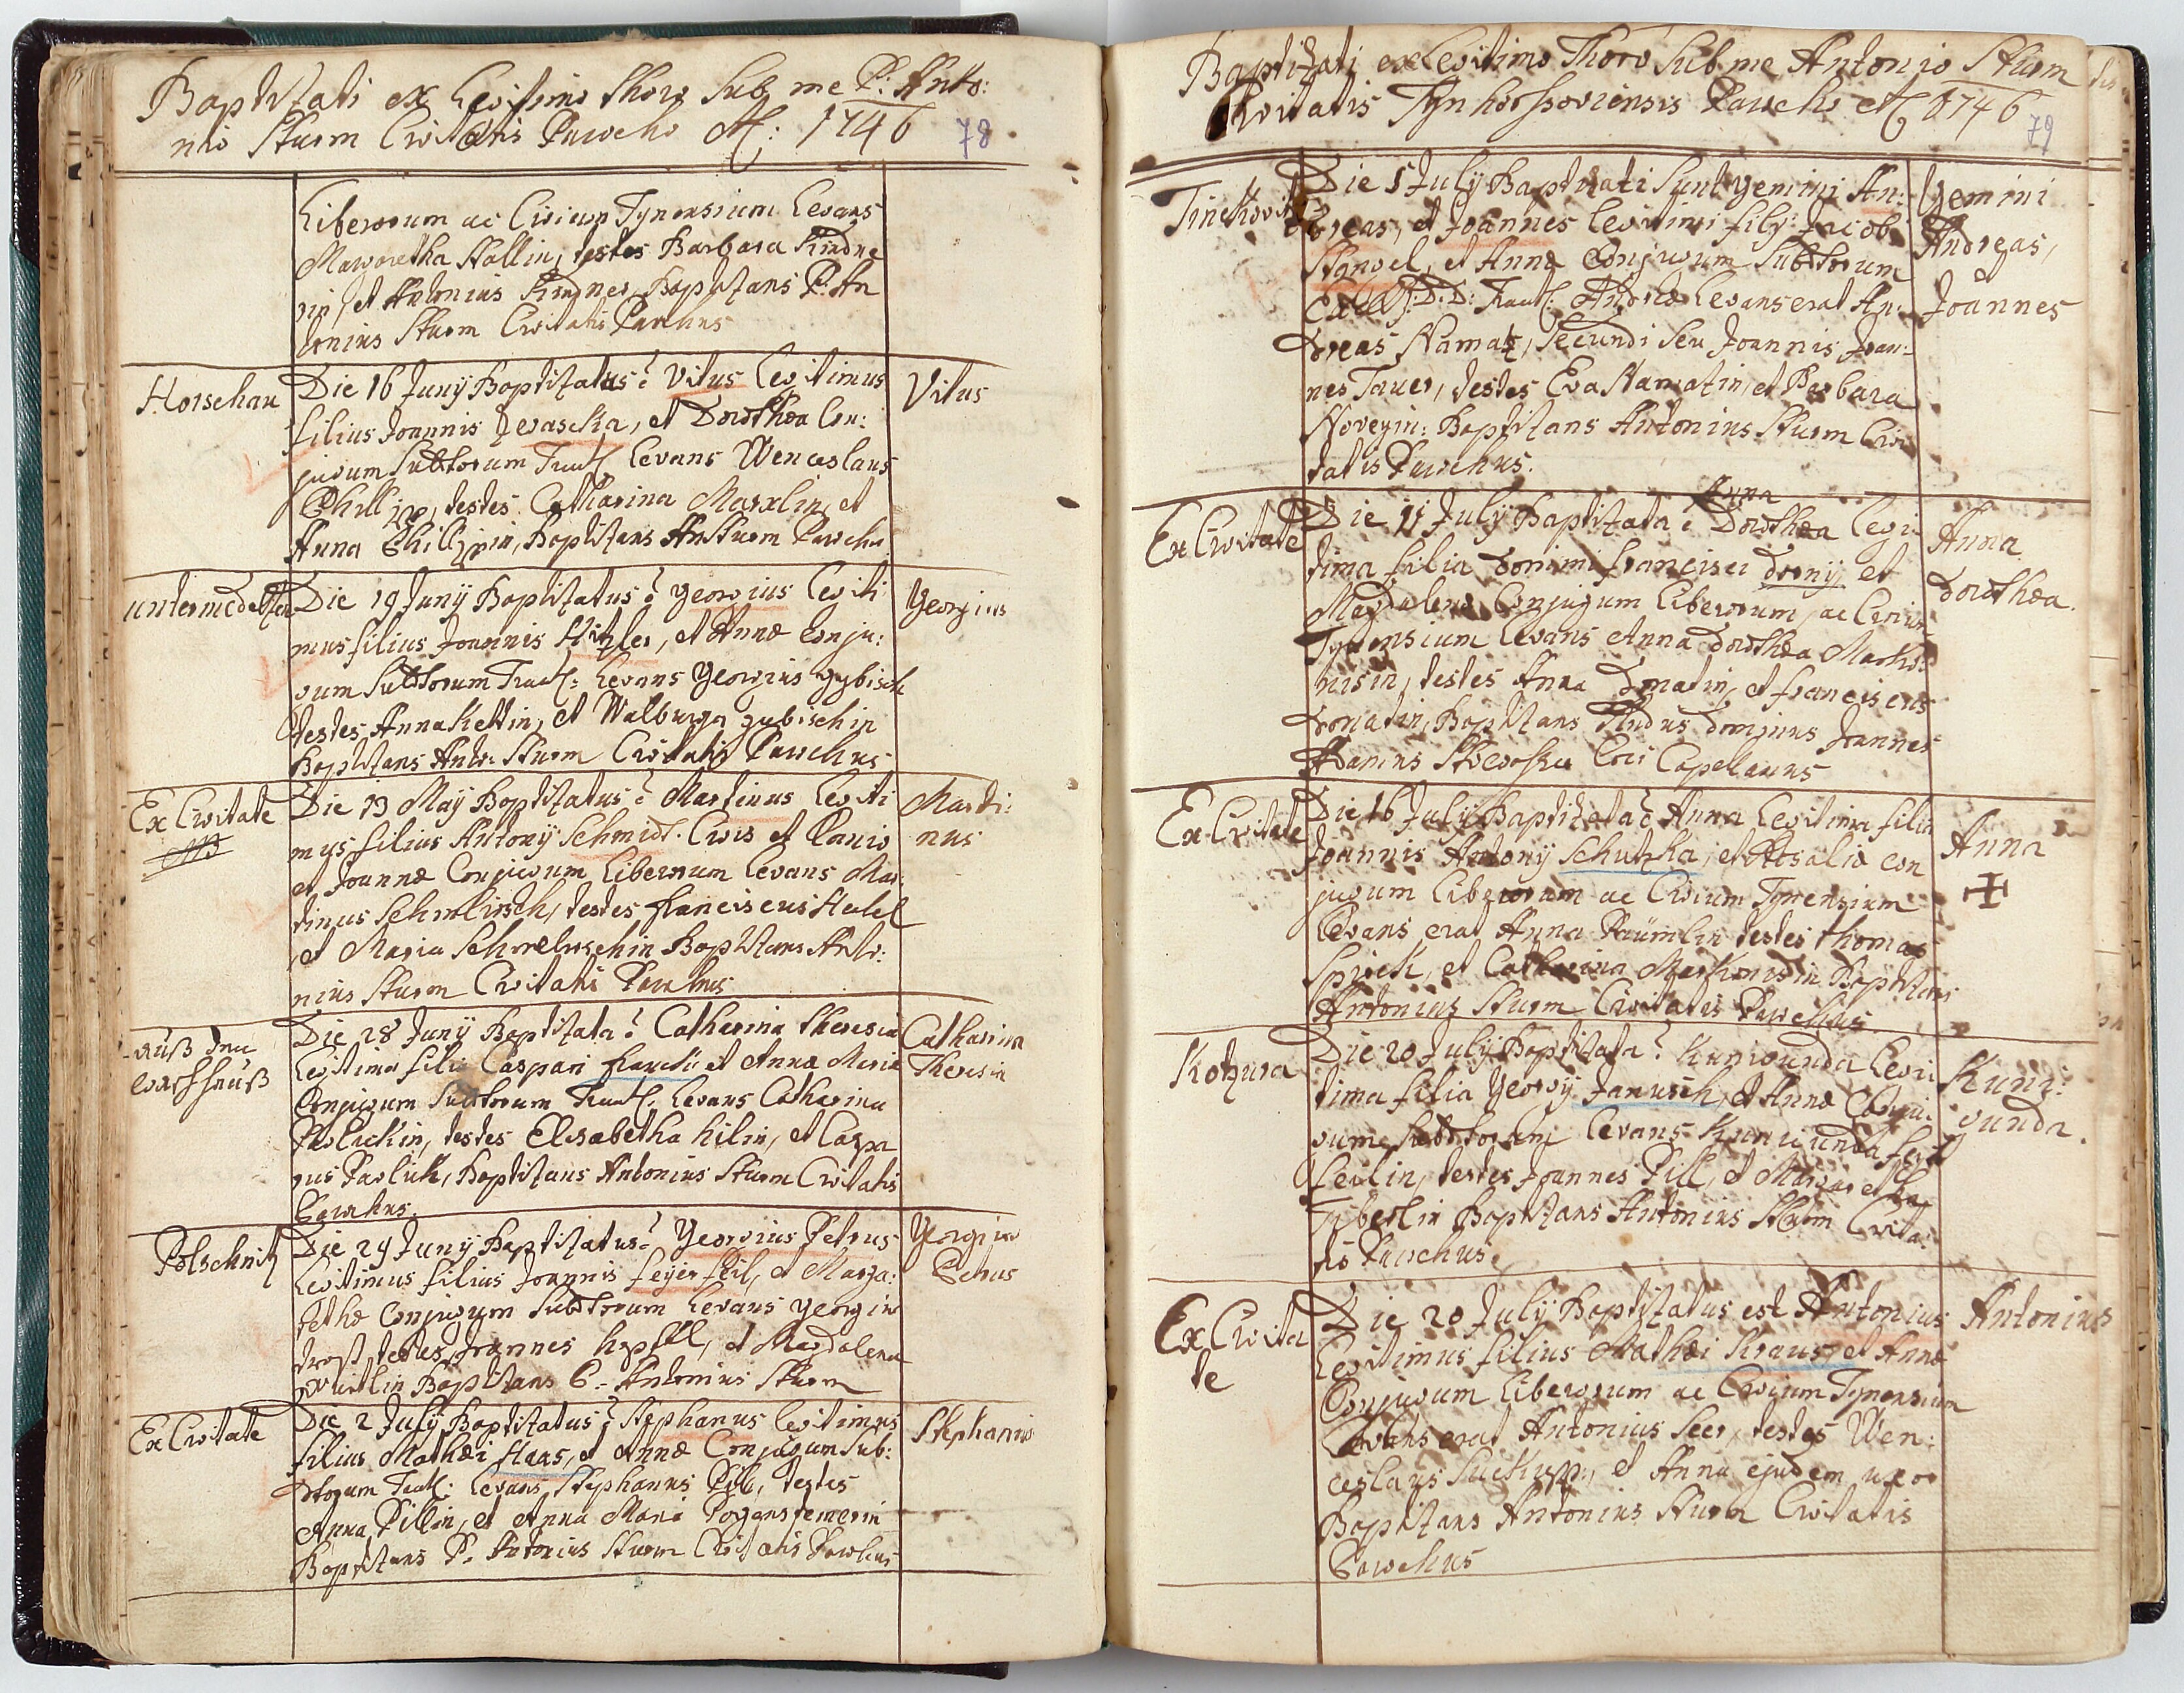 Baptizati ex Legitimo Thoro Sub me P: Anto:
nio Sturm Civitatis Parocho A: 1746
78
Liberorum ac Civium Tynensium Levans
Margaretha Hallin, testes Barbara Kindne
rin, et Antonius Kindner, Baptizans P. An
tonius Sturm Civitatis Parochus
Horschau
Die 16 Juny Baptizatus ē Vitus Legitimus
filius Joannis Jwaschka, et Dorothea Con:
jugum Subditorum Trautt: Levans Wenceslaus
Phillipp, testes Catharina Marxlin, et
Anna Phillippin, Baptizans An Sturm Parochu
Vitus
Untermedeltzen
Die 19 Juny Baptizatus ē Georgius Legiti
mus filius Joannis Hitzler, et Annæ Conju:
gum Subditorum Trautt: Levans Georgius gybisch
testes Anna Kettin, et Walburga gubischin
Baptizans Anto: Sturm Civitatis Parochus
Georgius
Ex Civitate
NB
Die 13 May Baptizatus ē Martinus Legiti
mus filius Antony Schmidt. Civis et
et Joannæ Conjugum Liberorum Levans Mar:
tinus Schmlirsch, testes Franciscus Hakel
et Maria Schmelirschin Baptizans Anto:
nius Sturm Civitatis Parochus
Marti:
nus
auß dem
Die 28 Juny Baptizata ē Catharina Theresia
Legitima filia Caspari et Annæ Mariæ
Conjugum Subditorum Trautt: Levans Catharina
Pavlickin, testes Elisabetha Hilin, et Caspa
rus Pavlick, Baptizans Antonius Sturm Civitatis
Parochus.
Catharina
Theresia
Potschnitz
Die 29 Juny Baptizatus ē Georgius Petrus
Legitimus filius Joannis feyerfeil, et Marga:
rethæ Conjugum Subditorum Levans Georgius
testes Joannes et Magdalena
Baptizans P. Antonius Sturm
Georgius
Petrus
Ex Civitate
Die 2 July Baptizatus ē Stephanus legitimus
filius Mathæi Haas, et Annæ Conjugum Sub:
ditorum Trautt: Levans Stephanus Pill, testes
Anna Pillin, et Anna Maria
Baptizans P. Antonius Sturm Civitatis Parochus
Stephanus
Baptizati ex Legitimo Thoro Sub me Antonio Sturm
Civitatis Tynhorssoviensis Parocho A 1746
79
Die 5 July Baptizati Sunt Gemini An:
dreas, et Joannes legitimi filij Jacobi
Stangel, et Annæ Conjugum Subditorum
Levans erat An:
dreas Hamatz, Secundi Seu Joannis Joan:
nes Tauer, testes Eva Hamatin, et Barbara
Noveyin: Baptizans Antonius Sturm Civi
tatis Parochus.
Gemini
Andreas,
Joannes
Ex Civitate
Anna
Die 11 July Baptizata ē Dorothea legi
tima filia Domini Francisci drony et
Magdalenæ Conjugum Liberorum, ac Civium
Tynensium Levans Anna Dorothea Marko:
nisin, testes Anna Donatin, et Franciscus
Donatin, Baptizans Dominus Joannes
Loci Capelanus
Anna
Dorothea.
Ex Civitate
Die 16 July Baptizata ē Anna Legitima filia
Joannis Antony Schutzka, et Rosaliæ con
jugum Liberorum ac Civium Tynensium
Levans erat Anna Paümlin testes Thomas
Spirck, et Catharina Markonisin Baptizans
Antonius Sturm Civitatis Parochus
Anna
Kotzura
Die 20 July Baptizata ē Kunigunda Legi
tima filia Georgy Janusch, et Annæ Conju:
gum Subditorum Levans Kunigunda feyer
feilin, testes Joannes Pill, et Margaretha
Tyberlin Baptizans Antonius Sturm Civita:
tis Parochus.
Kuni:
gunda.
Ex Civita
te
Die 20 July Baptizatus est Antonius
Legitimus filius Mathæi Kraus, et Annæ
Conjugum Liberorum ac Civium Tynensium
Levans erat Antonius Seer, testes Wen:
ceslaus Suckup, et Anna ejusdem uxor
Baptizans Antonius Sturm Civitatis
Parochus
Antonius